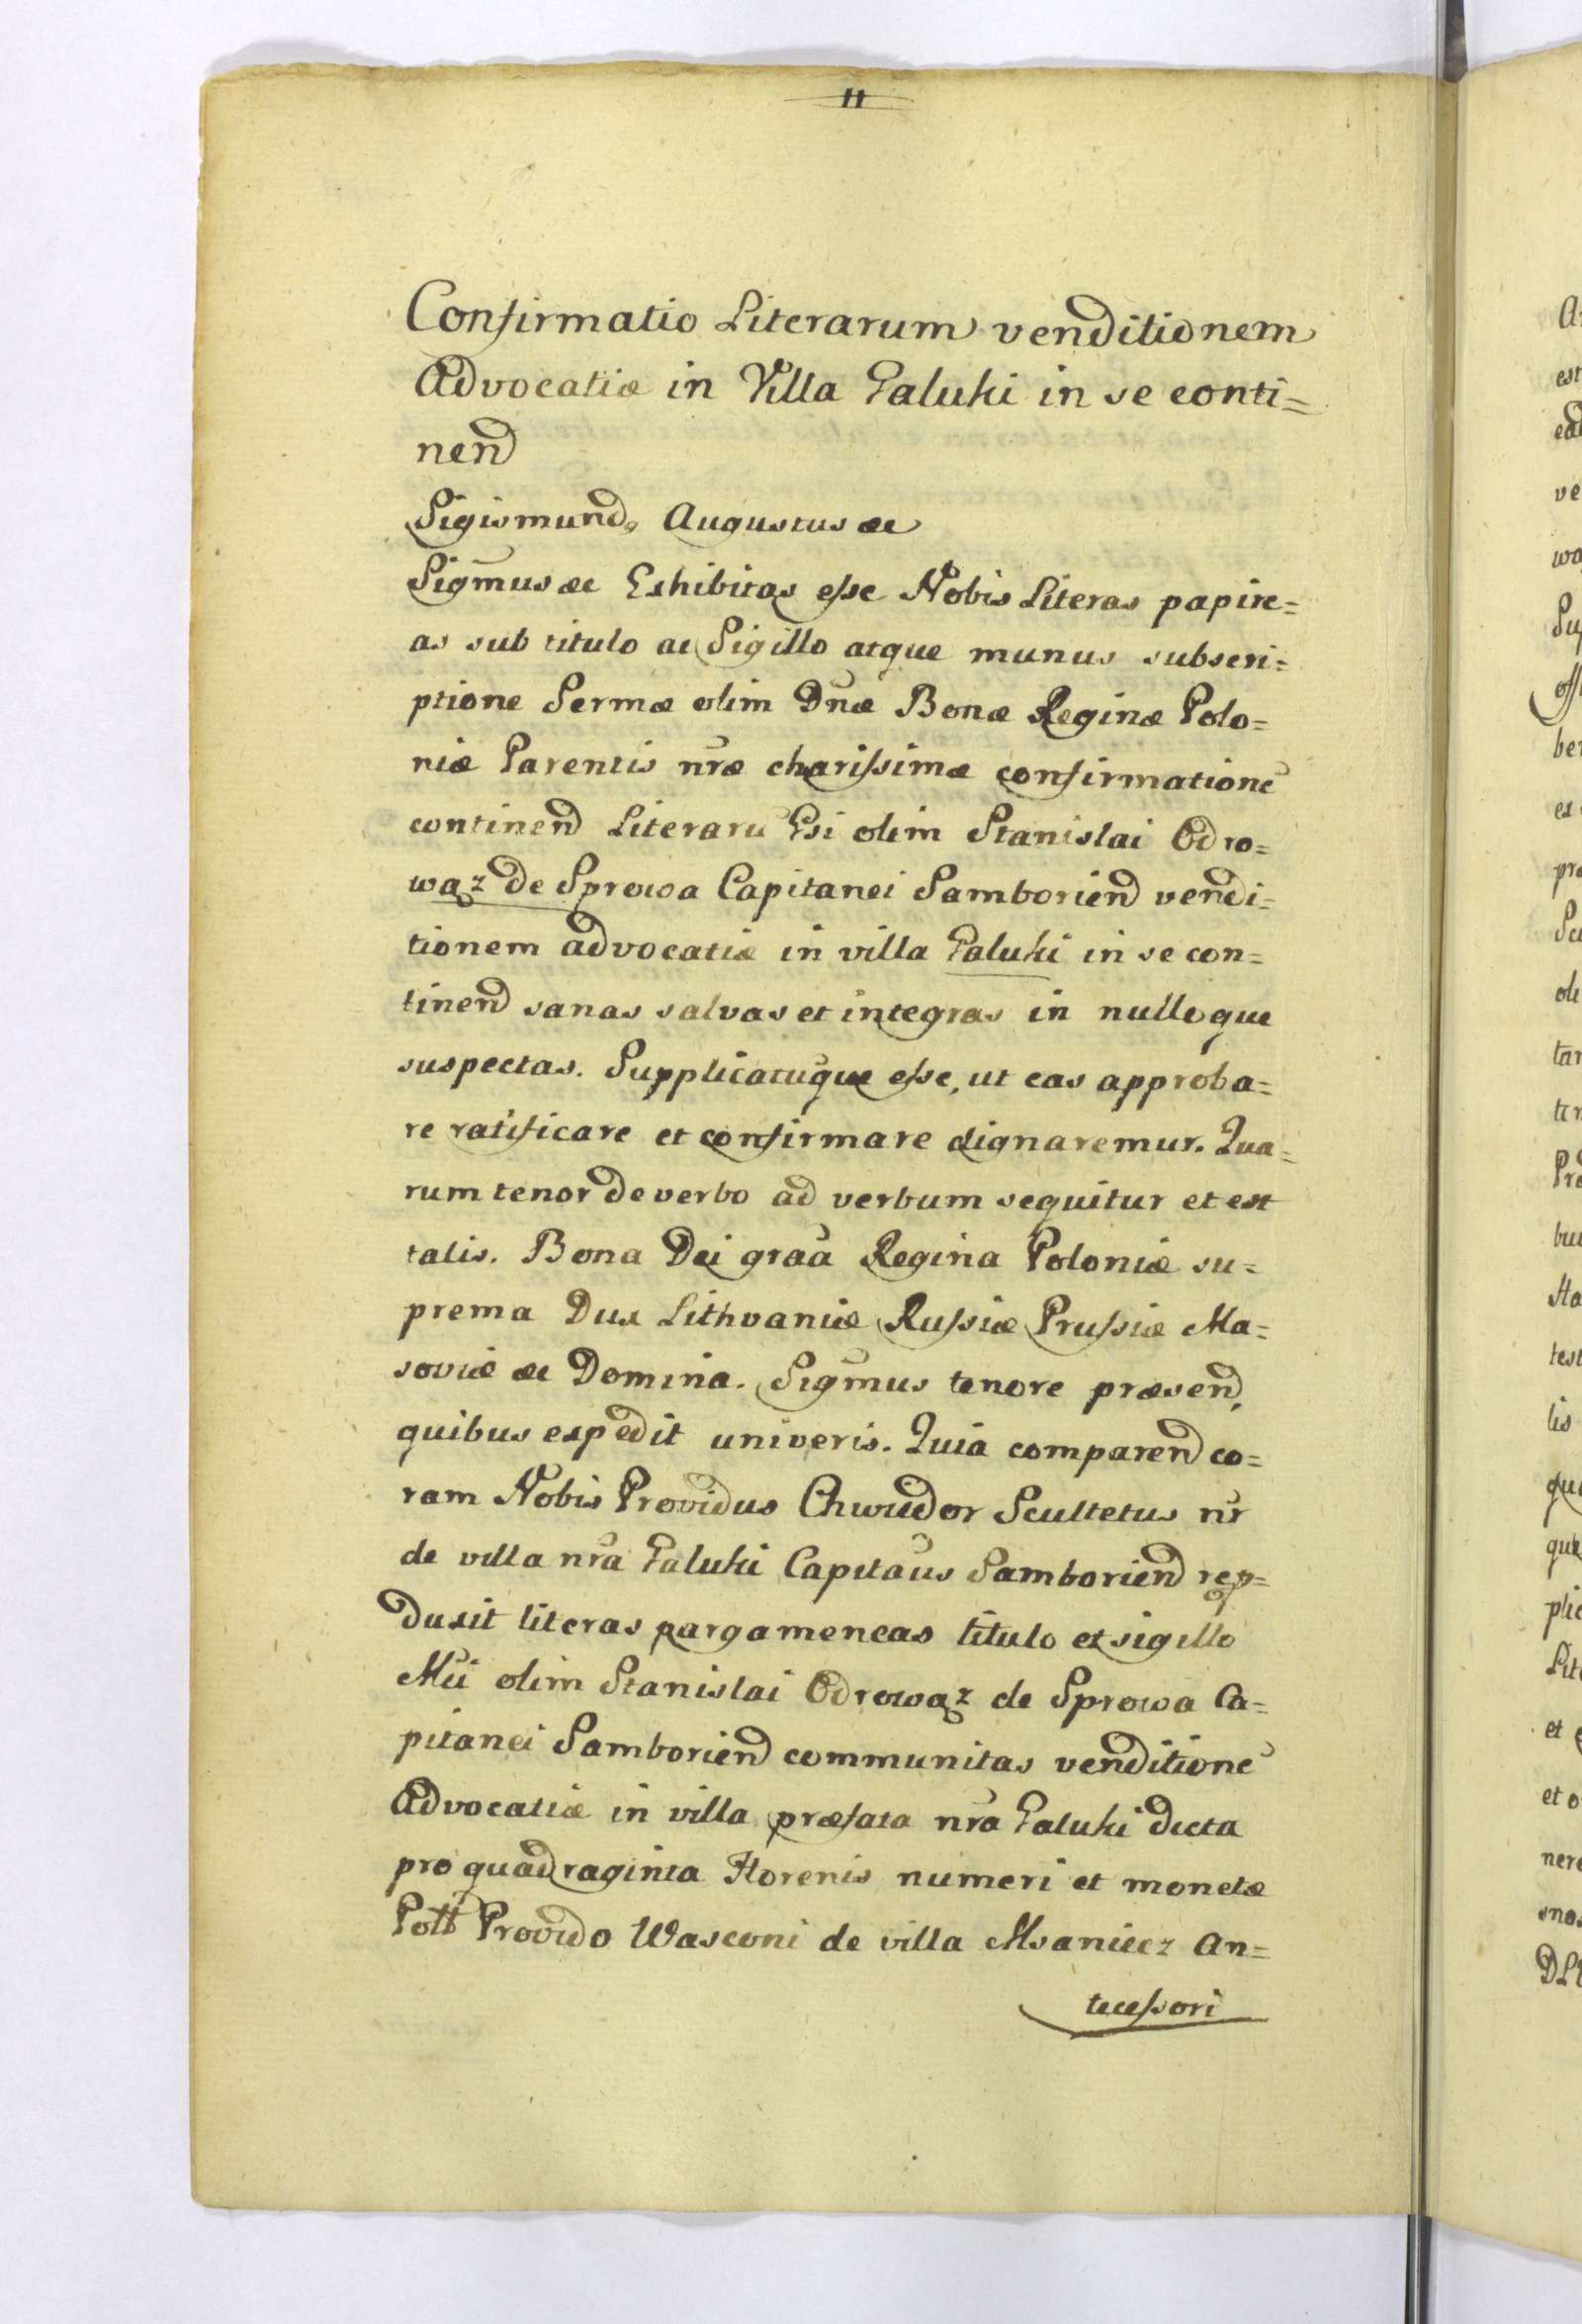 11
Confirmatio Literarum venditionem
Advocatiæ in Villa Galuki in se conti=
nend
Sigismund9 Augustus &c
Sigmus &c Exhibitas esse Nobis Literas papire=
as sub titulo ac Sigillo atque munus subscri=
ptione Sermæ olim Dnæ Bonæ Reginæ Polo=
niæ Parentis nræ charissimæ confirmationē
continend Literarū Gsi olim Stanislai Odro=
wąz de Sprowa Capitanei Samborien̄d vendi=
tionem advocatiæ in villa Galuki in se con=
tinend sanas salvas et integras in nulloque
suspectas. Supplicatūque esse, ut eas approba=
re ratificare et confirmare dignaremur. Qua=
rum tenor de verbo ad verbum sequitur et est
talis. Bona Dei graā Regina Poloniæ su=
prema Dux Lithvaniæ Russiæ Prussiæ Ma=
soviæ &c Domina. Sigmus tenore præsend,
quibus expedit univeris. Quia comparend co=
ram Nobis Providus Chwiedor Scultetus nr
de villa nra Galuki Capitaus Samboriend rep=
duxit literas pargameneas titulo et sigillo
Mci olim Stanislai Odrowąz de Sprowa Ca=
pitanei Samboriend communitas venditionē
Advocatiæ in villa præfata nra Galuki dicta
pro quadraginta Florenis numeri et monetæ
Poll Provido Wasconi de villa Msaniecz An=
tecessori